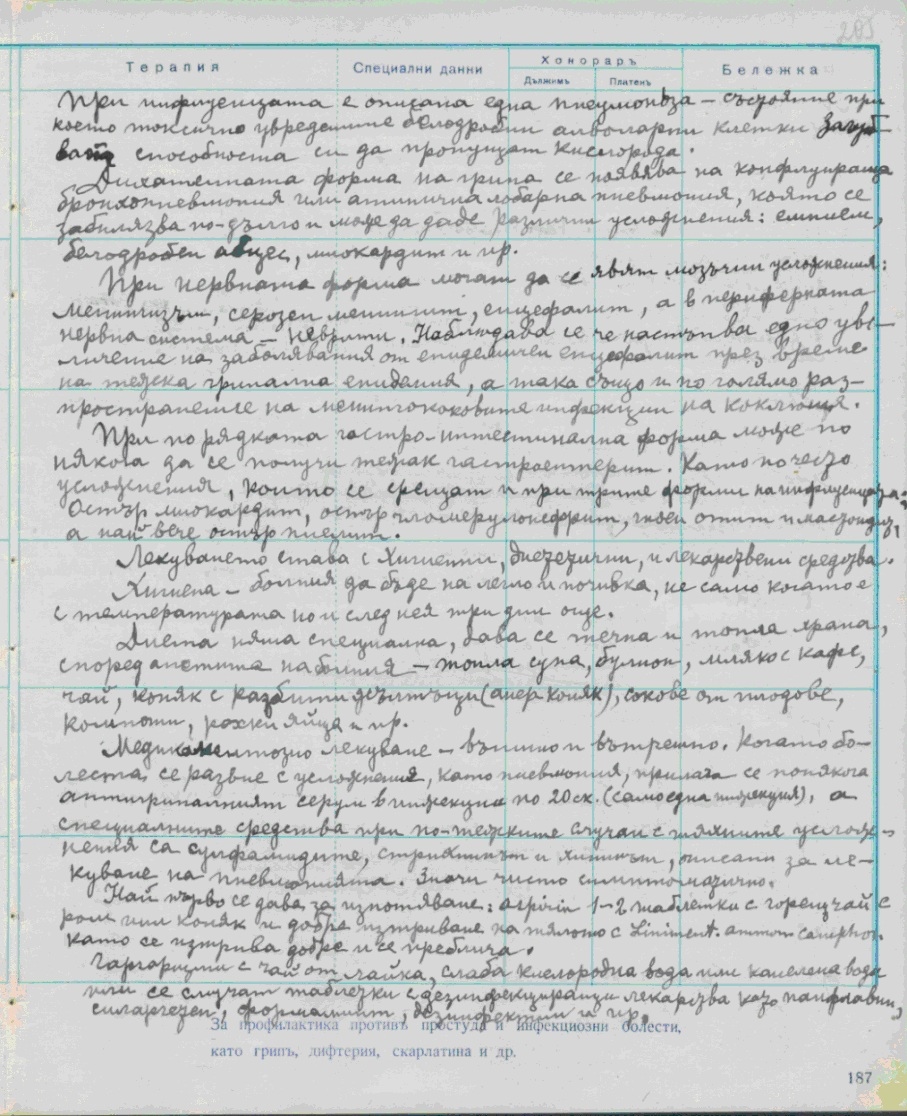 205
Терапия Специални данни Хонораръ Бележка
Дължимъ Платенъ
При инфлуенцата е описана една пневмоноза – състояние при
което токсично увредените белодробни алвеоларни клетки загуб-
ват способноста си да пропущат кислорода.
Дихателната форма на грипа се появява на конфлуираща
бронхопневмония или атипична лобарна пневмония, която се
забилязва по-дълго и може да даде различни усложнения: емпием,
белодробен абцес, миокардит и пр.
При нервната форма могат да се явят мозъчни усложнения:
менингизъм, серозен менингит, енцефалит, а в периферната
нервна система – неврити. Наблюдава се че настъпва едно уве-
личение на заболявания от епидемичен енцефалит през време
на тежка грипална епидемия, а така също и по голямо раз-
пространение на менингококовите инфекции на коклюша.
При по рядката гастро-интестинална форма може по
някога да се получи тежък гастроентерит. Като по често
усложнения, които се срещат и при трите форми на инфлуенцата:
Остър миокардит, остър гломерулонефрит, гноен отит и мастоидит,
а най вече остър пиелит.
Лекуването става с Хигиенни, диететични, и лекарствени средства.
Хигиена – болния да бъде на легло и почивка, не само когато е
с температурата но и след нея три дни още.
Диета няма специална, дава се течна и топла храна,
според апетита на болния – топла супа, булион, мляко с кафе,
чай, коняк с разбити жълтъци (аиер коняк), сокове от плодове,
компоти, рохки яйца и пр.
Медикаментозно лекуване – външно и вътрешно. Когато бо-
леста се развие с усложнения, като пневмония, прилага се понякога
антигрипалният серум в инжекции по 20 см. (само една инжекция), а
специалните средства при по-тежките случаи с тяхните услож-
нения са сулфамидите, стрихнинът и хининът, писани за ле-
куване на пневмонията. Значи чисто симптоматично.
Най първо се дава за изпотяване: aspirin 1–2 таблетки с горещ чай с
ром или коняк и добре изтриване на тялото с Liniment. ammon camphor.
като се изтрива добре и се преблича.
Гаргаризми с чай от лайка, слаба кислородна вода или калелена вода
или се смучат таблечки с дезинфекциращи лекарства като панфлавин,
силаргезен, формалинт, дезинфектин и пр.
За профилактика противъ простуда и инфекциозни болести,
като грипъ, дифтерия, скарлатина и др.
187